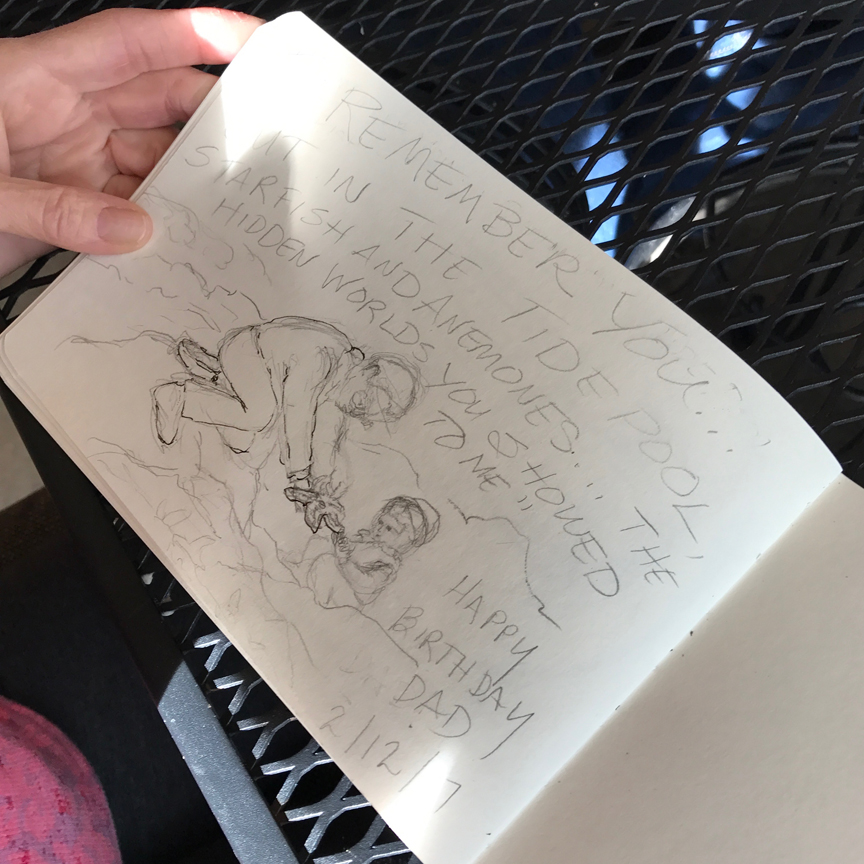 REMEMBER YOU...
OUT IN THE TIDE POOL,
STARFISH AND ANEMONES... THE
HIDDEN WORLDS YOU SHOWED
TO ME"
HAPPY
BIRTHDAY
DAD
2/12/7